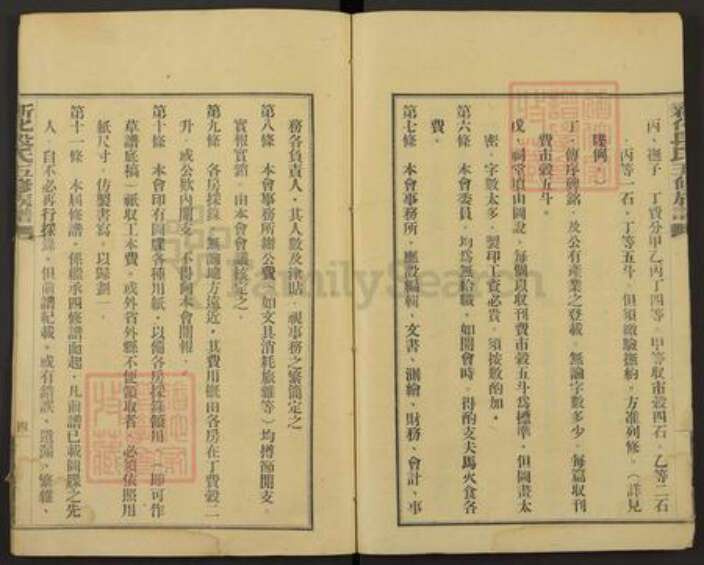 丙、撫子、丁費分甲乙丙丁四等、甲等取市穀四石、乙等二石
、丙等一石、丁等五斗、但須繳驗撫約、方准列修、（詳見
條例。）
丁、傳序碑銘、及公有產業之登載、無論字數多少、每篇取刊
費市穀五斗。
戊、祠堂墳山圖說、每個以取刊費市穀五斗為標準、但圖畫太
密、字數太多、製印工資必貴、須按數酌加。
第六條　本會委員、均為無給職、如開會時、得酌支夫馬火食各
費。
第七條　本會事務所、應設編輯、文書、測繪、財務、會計、事
務各負責人、其人數及津貼、視事務之繁簡定之
第八條　本會事務所辦公費（如文具消耗旅雜等）均撙節開支、
實報實銷、由本會會議核定之。
第九條　各房採錄、無論地方遠近、其費用概由各房在丁費穀二
升、或公款內開支、不得向本會開報。
第十條　本會印有圖牒各種用紙、以備各房採錄領用、（即可作
草譜底稿）祇取工本費、或外省外縣不便領取者、必須依照用
紙尺寸、仿製書寫、以歸劃一。
第十一條　本屆修譜、係繼承四修譜而起、凡前譜已載圖牒之先
人、自不必再行採錄、但前譜紀載、或有錯誤、遺漏、繁雜、
新化段氏五修族譜
四
FamilySearch